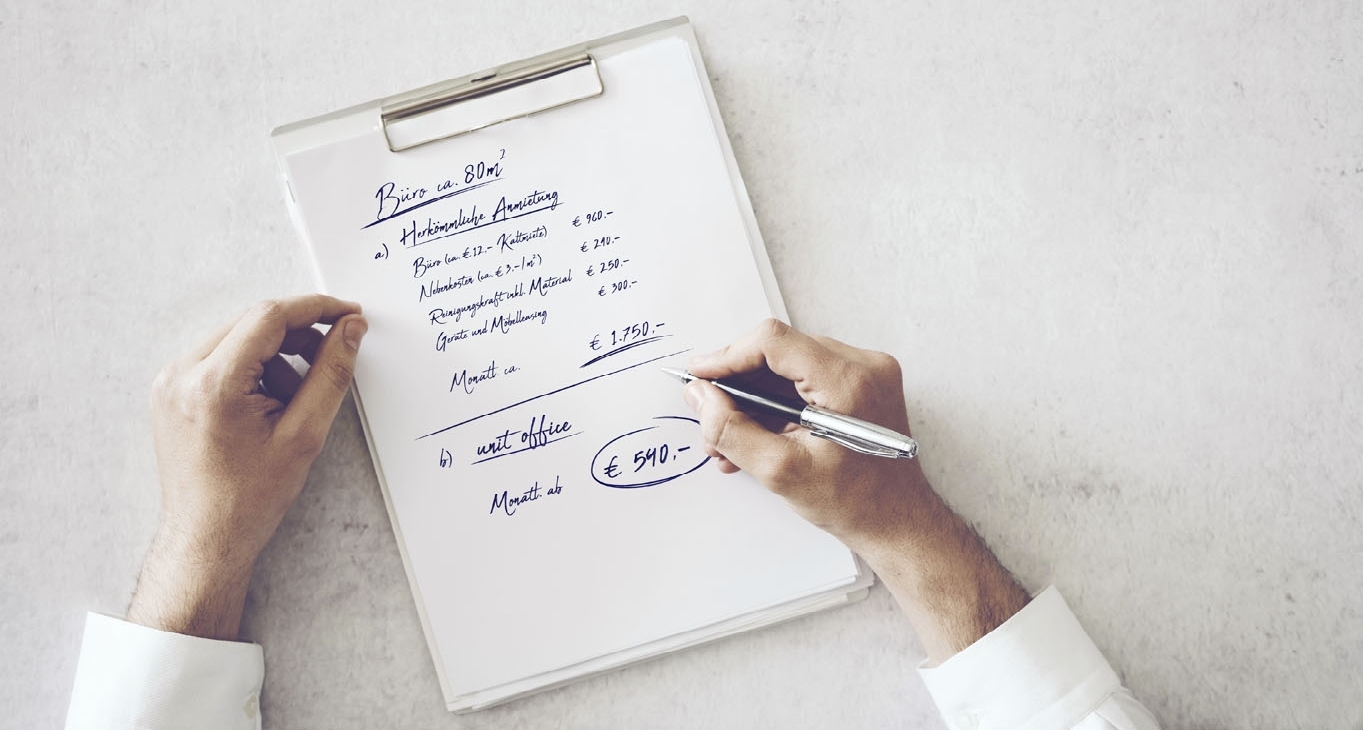 Büro ca. 80m²
a) Herkömmliche Anmietung
Büro (ca. € 12,- Kaltmiete) € 960.-
Nebenkosten (ca. € 3,-/m²) € 240.-
Reinigungskraft inkl. Material € 250.-
Geräte und Möbelleasing € 300.-
Monatl. ca. € 1.750,-
b) unit office
Monatl. ab € 540,-